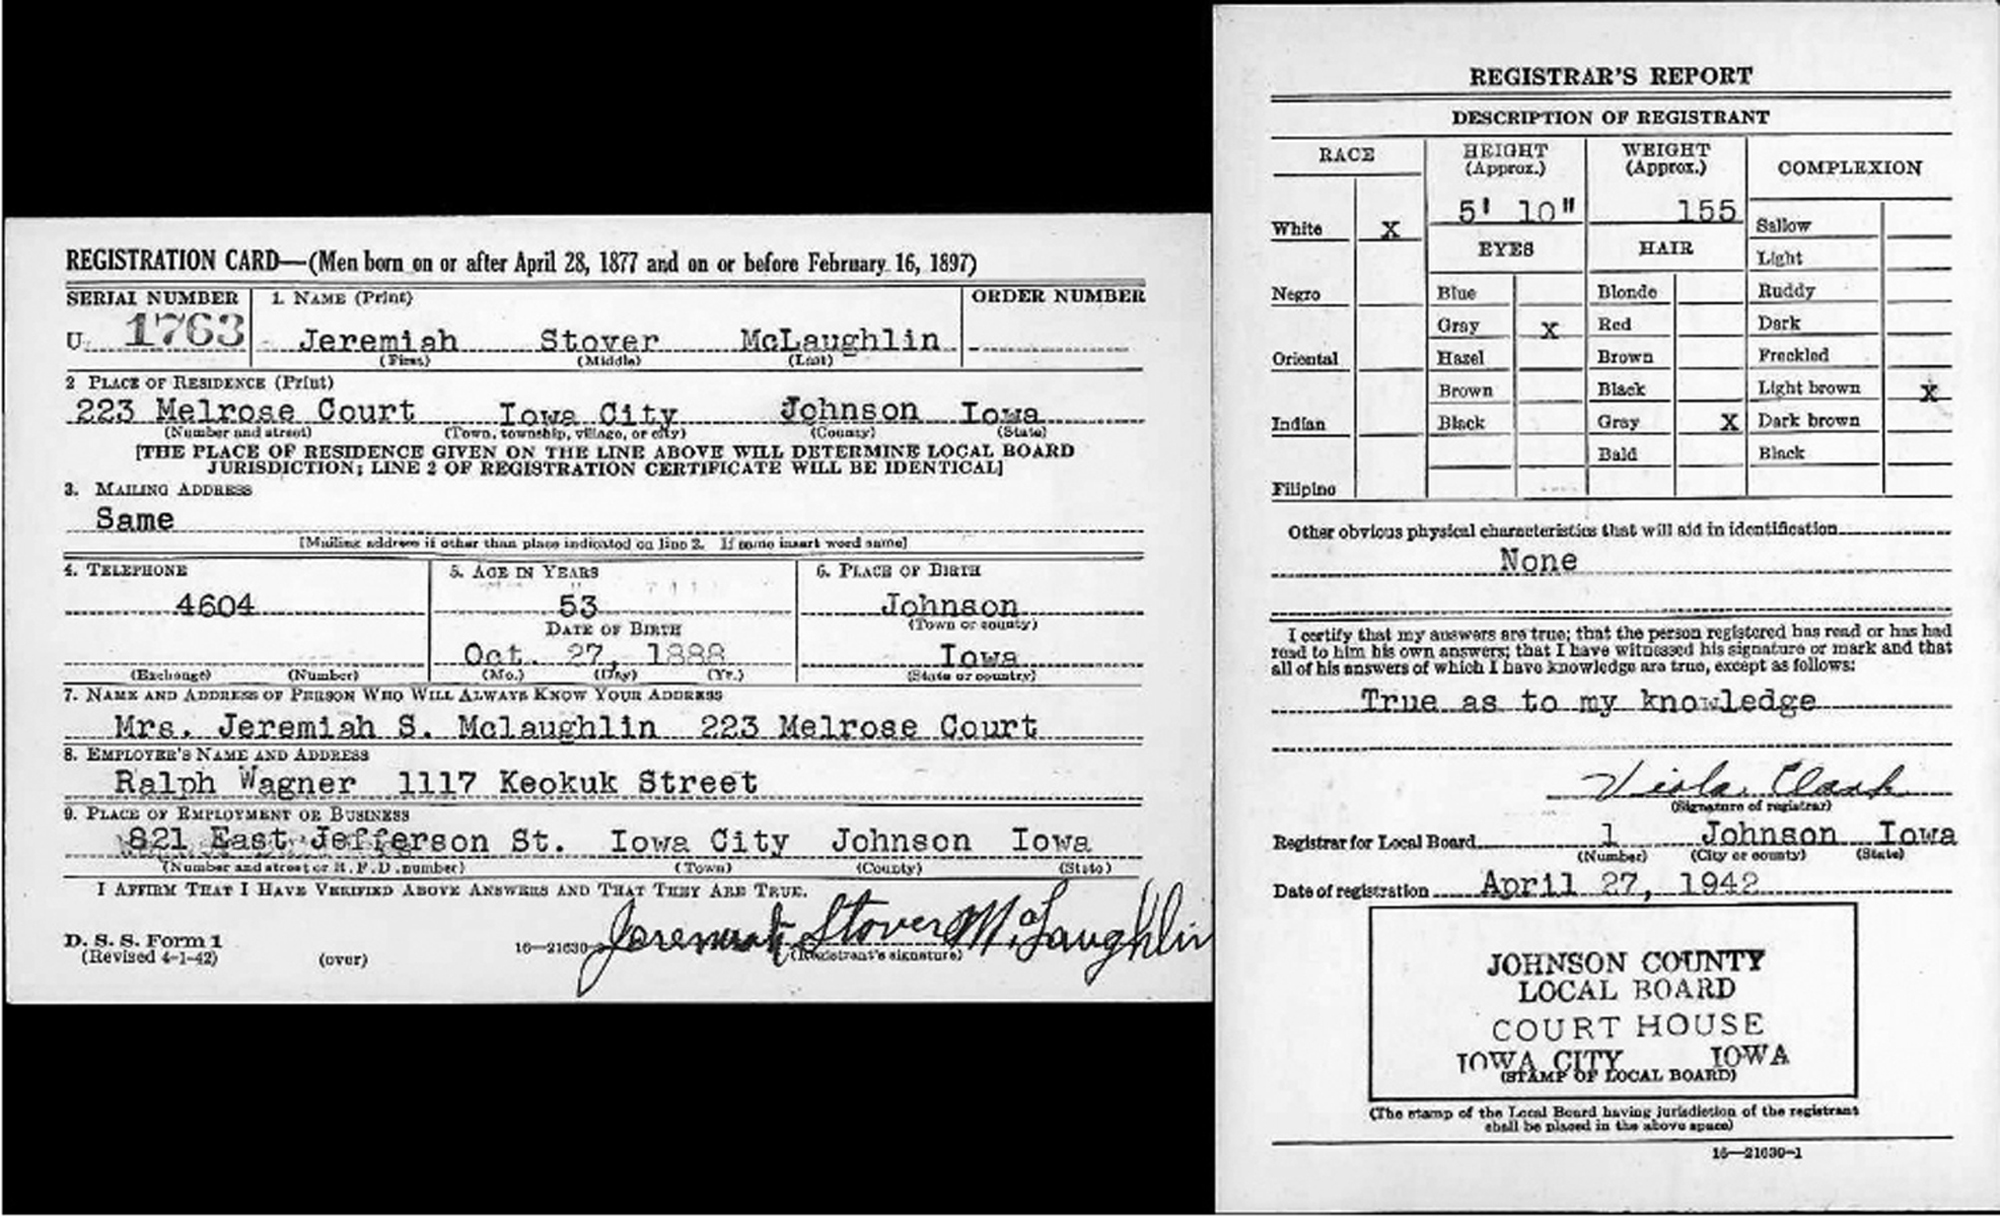 REGISTRATION CARD—(Men born on or after April 28, 1877 and on or before February 16, 1897)
SERIAL NUMBER 1. NAME (Print) ORDER NUMBER
U 1763 Jeremiah Stover McLaughlin
(First) (Middle) (Last)
2 PLACE OF RESIDENCE (Print)
223 Melrose Court Iowa City Johnson Iowa
(Number and street) (Town, township, village, or city) (County) (State)
[THE PLACE OF RESIDENCE GIVEN ON THE LINE ABOVE WILL DETERMINE LOCAL BOARD
JURISDICTION; LINE 2 OF REGISTRATION CERTIFICATE WILL BE IDENTICAL]
3. MAILING ADDRESS
Same
[Mailing address if other than place indicated on line 2. If same insert word same]
4. TELEPHONE 5. AGE IN YEARS 6. PLACE OF BIRTH
4604 53 Johnson
(Town or county)
DATE OF BIRTH
Oct. 27, 1888 Iowa
(Exchange) (Number) (Mo.) (Day) (Yr.) (State or country)
7. NAME AND ADDRESS OF PERSON WHO WILL ALWAYS KNOW YOUR ADDRESS
Mrs. Jeremiah S. Mclaughlin 223 Melrose Court
8. EMPLOYER'S NAME AND ADDRESS
Ralph Wagner 1117 Keokuk Street
9. PLACE OF EMPLOYMENT OR BUSINESS
821 East Jefferson St. Iowa City Johnson Iowa
(Number and street or R. F. D. number) (Town) (County) (State)
I AFFIRM THAT I HAVE VERIFIED ABOVE ANSWERS AND THAT THEY ARE TRUE.
D. S. S. Form 1
(Revised 4-1-42) (over) 16—21630 Jeremiah Stover McLaughlin
(Registrant's signature)
REGISTRAR'S REPORT
DESCRIPTION OF REGISTRANT
RACE HEIGHT (Approx.) WEIGHT (Approx.) COMPLEXION
5' 10" 155
White X EYES HAIR Sallow
Light
Negro Blue Blonde Ruddy
Gray X Red Dark
Oriental Hazel Brown Freckled
Brown Black Light brown X
Indian Black Gray X Dark brown
Bald Black
Filipino
Other obvious physical characteristics that will aid in identification
None
I certify that my answers are true; that the person registered has read or has had
read to him his own answers; that I have witnessed his signature or mark and that
all of his answers of which I have knowledge are true, except as follows:
True as to my knowledge
Viola Clark
(Signature of registrar)
Registrar for Local Board 1 Johnson Iowa
(Number) (City or county) (State)
Date of registration April 27, 1942
JOHNSON COUNTY
LOCAL BOARD
COURT HOUSE
IOWA CITY IOWA
(STAMP OF LOCAL BOARD)
(The stamp of the Local Board having jurisdiction of the registrant
shall be placed in the above space)
16—21630-1